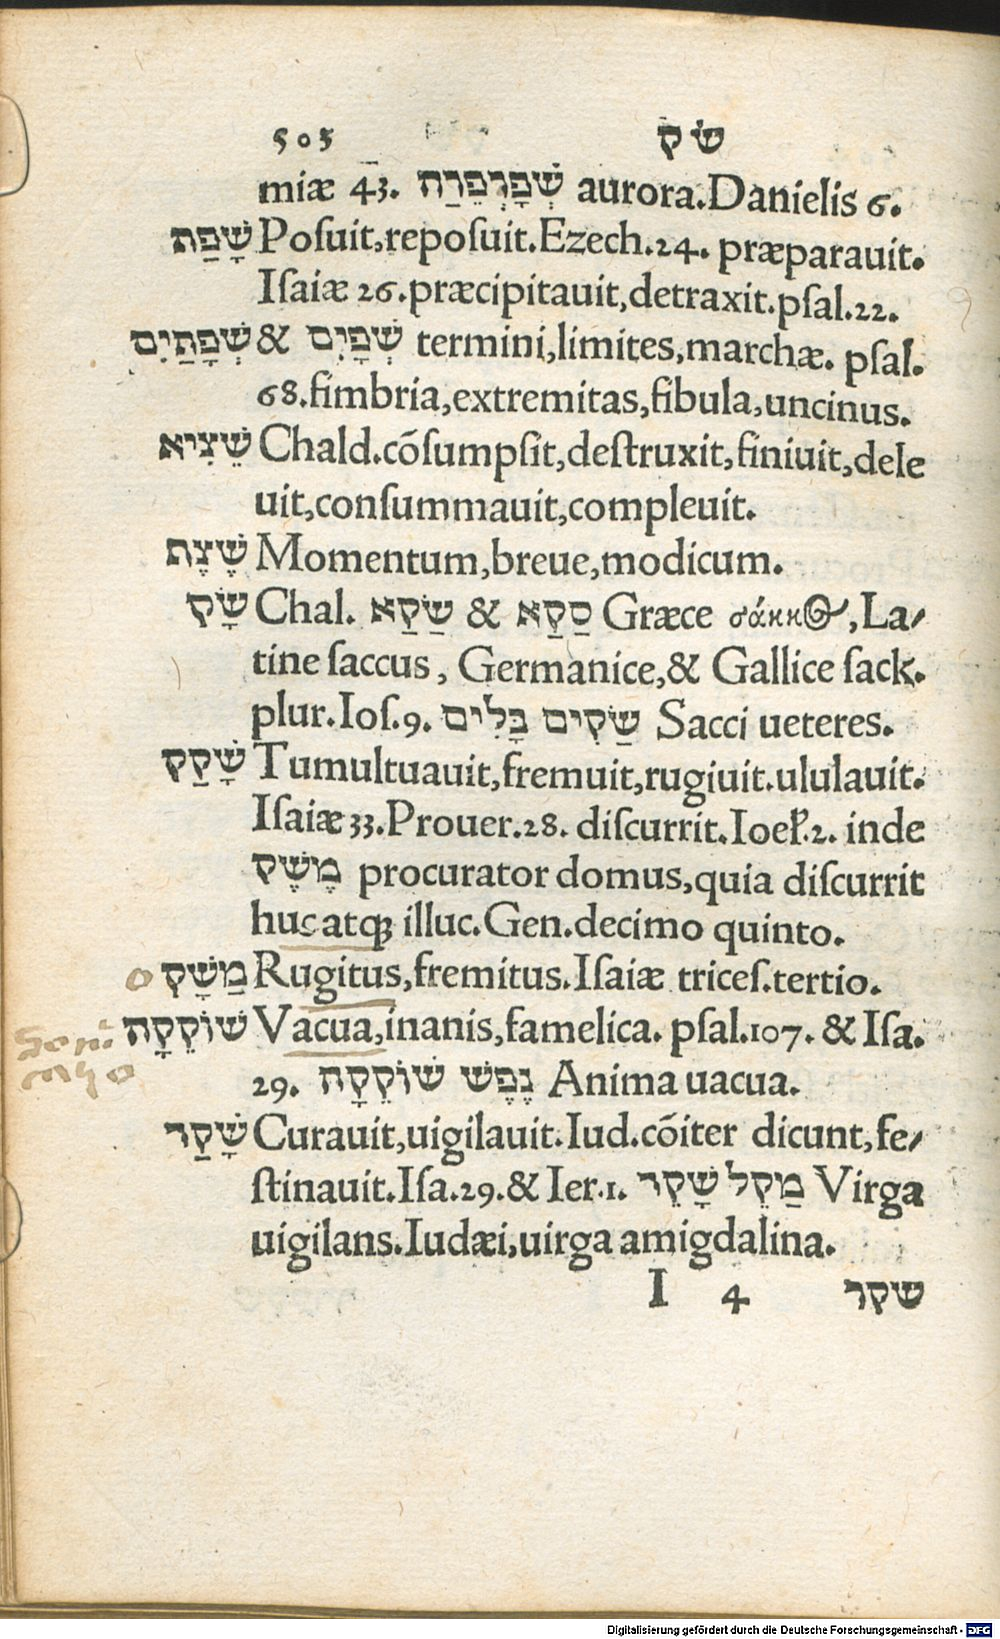 505 שׂק
miæ 43. שְׁפָרְפֵרַח aurora.Danielis 6.
שָׁפַת Poſuit,repoſuit.Ezech.24. præparauit.
Iſaiæ 26.præcipitauit,detraxit.pſal.22.
שְׁפָתַיִם & שְׁפָיִם termini,limites,marchæ. pſal.
68.fimbria,extremitas,fibula,uncinus.
שֵׁצִיא Chald.cõſumpſit,deſtruxit,finiuit,dele
uit,conſummauit,compleuit.
שֶׁצֶת Momentum,breue,modicum.
שָׂק Chal. שַׂקָא & סַקָא Græce σάκκος,La/
tine ſaccus, Germanice,& Gallice ſack.
plur.Ioſ.9. שַׂקִים בָּלִים Sacci ueteres.
שָׁקַק Tumultuauit,fremuit,rugiuit.ululauit.
Iſaiæ 33.Prouer.28. diſcurrit.Ioel.2. inde
מֶשֶׁק procurator domus,quia diſcurrit
huc atqꝫ illuc.Gen.decimo quinto.
מַשָׁק Rugitus,fremitus.Iſaiæ triceſ.tertio.
שׁוֹקֵקָה Vacua,inanis,famelica. pſal.107. & Iſa.
29. נֶפֶשׁ שׁוֹקֵקָה Anima uacua.
שָׁקַד Curauit,uigilauit.Iud.cõiter dicunt,fe/
ſtinauit.Iſa.29.& Ier.1. מַקֵל שָׁקֵד Virga
uigilans.Iudæi,uirga amigdalina.
I 4 שקר
Digitalisierung gefördert durch die Deutsche Forschungsgemeinschaft - DFG